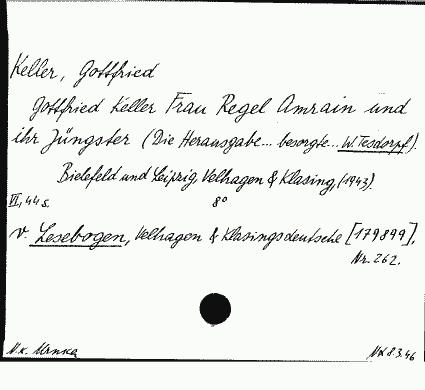 Keller, Gottfried
Gottfried Keller Frau Regel Amrain und
ihr Jüngster (Die Herausgabe... besorgte... W. Tesdorpf).
Bielefeld und Leipzig, Velhagen & Klasing, (1943).
VI, 44 s. 8°
v. Lesebogen, Velhagen & Klasings deutsche [179899].
Nr. 262.
8.3.46